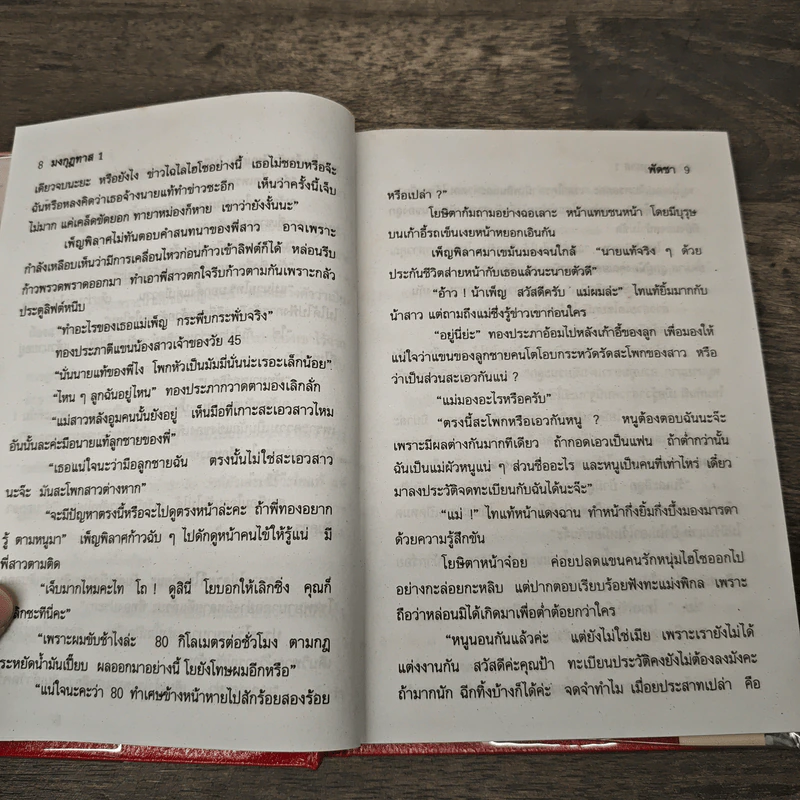 8 มงกุฎทาส 1
เดียวจบนะยะ หรือยังไง ข่าวไฉไลไฮโซอย่างนี้ เธอไม่ชอบหรือจ๊ะ
ฉันหรือหลงคิดว่าเธอจ้างนายแท้ทำข่าวซะอีก เห็นว่าครั้งนี้เจ็บ
ไม่มาก แค่เคล็ดขัดยอก ทายาหม่องก็หาย เขาว่ายังงั้นนะ”
เพ็ญพิลาศไม่ทันตอบคำสนทนาของพี่สาว อาจเพราะ
กำลังเหลือบเห็นว่ามีการเคลื่อนไหวก่อนก้าวเข้าลิฟต์ก็ได้ หล่อนรีบ
ก้าวพรวดพราดออกมา ทำเอาพี่สาวตกใจรีบก้าวตามกันเพราะกลัว
ประตูลิฟต์หนีบ
“ทำอะไรของเธอแม่เพ็ญ กระพี่บกระพั่บจริง”
ทองประภาตีแขนน้องสาวเจ้าของวัย 45
“นั่นนายแท้ของพี่ไง โพกหัวเป็นมัมมี่นั่นน่ะเรอะเล็กน้อย”
“ไหน ๆ ลูกฉันอยู่ไหน” ทองประภากวาดตามองเลิกลั่ก
“แม่สาวหลังอูมคนนั้นยังอยู่ เห็นมือที่เกาะสะเอวสาวไหม
อันนั้นละค่ะมือนายแท้ลูกชายของพี่”
“เธอแน่ใจนะว่ามือลูกชายฉัน ตรงนั้นไม่ใช่สะเอวสาว
นะจ๊ะ มันสะโพกสาวต่างหาก”
“จะมีปัญหาตรงนี้หรือจะไปดูตรงหน้าล่ะคะ ถ้าพี่ทองอยาก
รู้ ตามหนูมา” เพ็ญพิลาศก้าวฉับ ๆ ไปดักดูหน้าคนไข้ให้รู้แน่ มี
พี่สาวตามติด
“เจ็บมากไหมคะไท โถ ! ดูสินี่ โยบอกให้เลิกซิ่ง คุณก็
ลิกซะทีนี่คะ”
“เพราะผมขับช้าไงล่ะ 80 กิโลเมตรต่อชั่วโมง ตามกฎ
ระหยัดน้ำมันเปี๊ยบ ผลออกมาอย่างนี้ โยยังโทษผมอีกหรือ”
“แน่ใจนะคะว่า 80 ทำเศษข้างหน้าหายไปสักร้อยสองร้อย
พัดชา 9
หรือเปล่า ?”
โยษิตาก้มถามอย่างฉอเลาะ หน้าแทบชนหน้า โดยมีบุรุษ
บนเก้าอี้รถเข็นเงยหน้าหยอกเอินกัน
เพ็ญพิลาศมาเขม้นมองจนใกล้ “นายแท้จริง ๆ ด้วย
ประกันชีวิตส่ายหน้ากับเธอแล้วนะนายตัวดี”
“อ้าว ! น้าเพ็ญ สวัสดีครับ แม่ผมล่ะ” ไทแท้ยิ้มมากกับ
น้าสาว แต่ถามถึงแม่ซึ่งรู้ข่าวเขาก่อนใคร
“อยู่นี่ย่ะ” ทองประภาอ้อมไปหลังเก้าอี้ของลูก เพื่อมองให้
แน่ใจว่าแขนของลูกชายคนโตโอบกระหวัดรัดสะโพกของสาว หรือ
ว่าเป็นส่วนสะเอวกันแน่ ?
“แม่มองอะไรหรือครับ”
“ตรงนี้สะโพกหรือเอวกันหนู ? หนูต้องตอบฉันนะจ๊ะ
เพราะมีผลต่างกันมากทีเดียว ถ้ากอดเอวเป็นแฟน ถ้าต่ำกว่านั้น
ฉันเป็นแม่ผัวหนูแน่ ๆ ส่วนชื่ออะไร และหนูเป็นคนที่เท่าไหร่ เดี๋ยว
มาลงประวัติจดทะเบียนกับฉันได้นะจ๊ะ”
“แม่ !” ไทแท้หน้าแดงฉาน ทำหน้ากึ่งยิ้มกึ่งบึ้งมองมารดา
ด้วยความรู้สึกขัน
โยษิตาหน้าจ๋อย ค่อยปลดแขนคนรักหนุ่มไฮโซออกไป
อย่างกะล่อยกะหลิบ แต่ปากตอบเรียบร้อยฟังทะแม่งพิกล เพราะ
ถือว่าหล่อนมิได้เกิดมาเพื่อต่ำต้อยกว่าใคร
“หนูนอนกันแล้วค่ะ แต่ยังไม่ใช่เมีย เพราะเรายังไม่ได้
แต่งงานกัน สวัสดีค่ะคุณป้า ทะเบียนประวัติคงยังไม่ต้องลงมังคะ
ถ้ามากนัก ฉีกทิ้งบ้างก็ได้ค่ะ จดจำทำไม เมื่อยประสาทเปล่า คือ